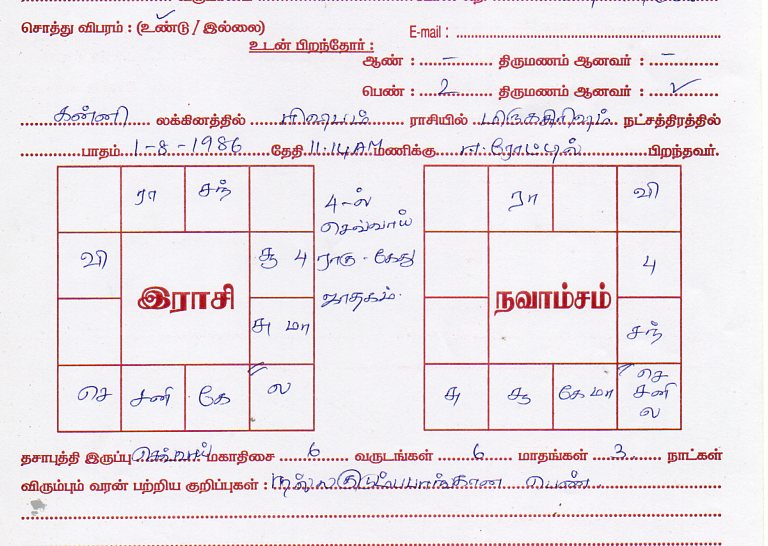 சொத்து விபரம் : (உண்டு / இல்லை) E-mail :
உடன் பிறந்தோர் :
ஆண் : – திருமணம் ஆனவர் : –
பெண் : 2 திருமணம் ஆனவர் : ✓
கன்னி லக்கினத்தில் ரிஷபம் ராசியில் மிருகசிரிஷம் நட்சத்திரத்தில்
பாதம் 1-8-1986 தேதி 11.14AM மணிக்கு ஈரோட்டில் பிறந்தவர்.
ரா சந்
வி சூ பு
இராசி
சு மா
செ சனி கே ல
4-ல்
செவ்வாய்
ராகு - கேது
ஜாதகம்.
ரா வி
பு
நவாம்சம்
சந்
சு சூ கே மா செ
சனி
ல
தசாபுத்தி இருப்பு செவ்வாய் மகாதிசை 6 வருடங்கள் 6 மாதங்கள் 3 நாட்கள்
விரும்பும் வரன் பற்றிய குறிப்புகள் : நல்ல குடும்பபாங்கான பெண்